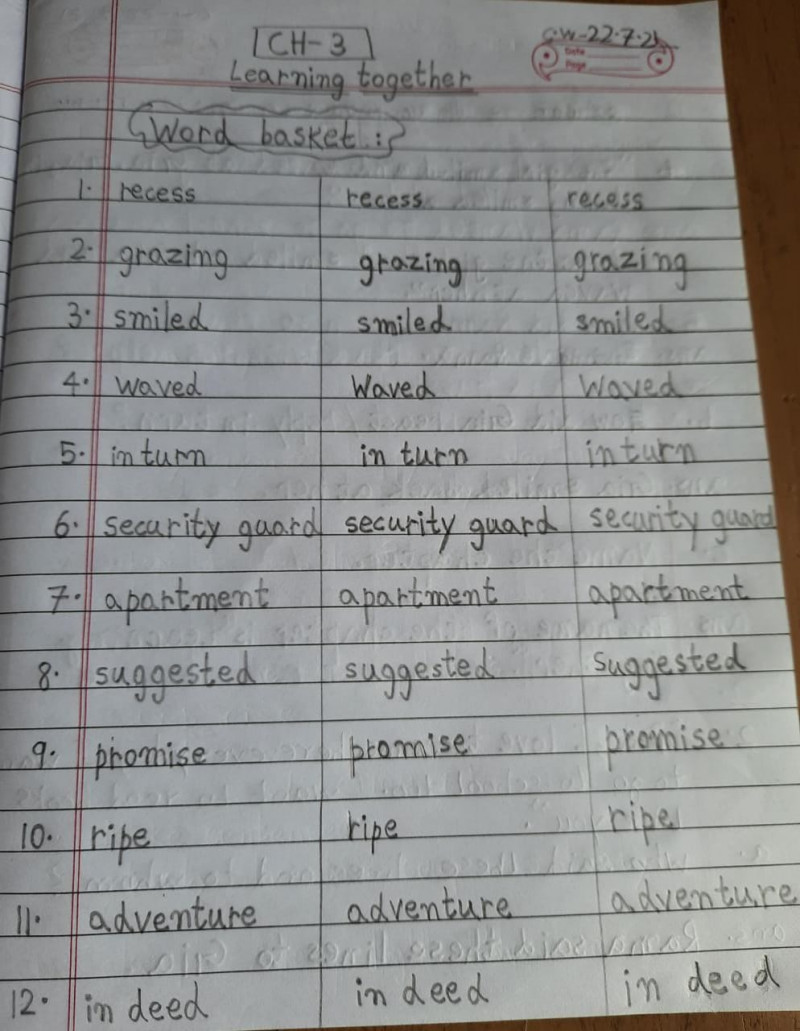 CH-3
C.W-22.7.25
Date
Page
Learning together
Word basket :
1. recess recess recess
2. grazing grazing grazing
3. smiled smiled smiled
4. waved waved waved
5. in turn in turn in turn
6. security guard security guard security guard
7. apartment apartment apartment
8. suggested suggested suggested
9. promise promise promise
10. ripe ripe ripe
11. adventure adventure adventure
12. in deed in deed in deed